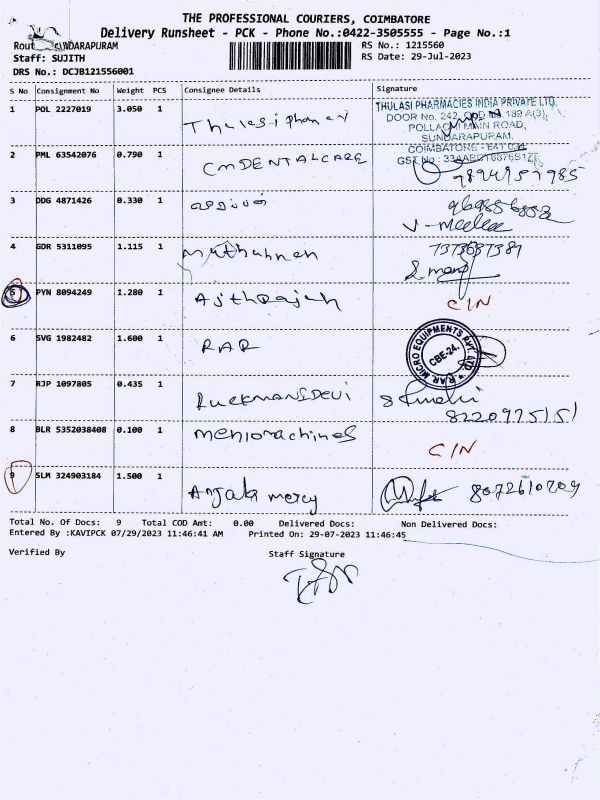 THE PROFESSIONAL COURIERS, COIMBATORE
Delivery Runsheet - PCK - Phone No.:0422-3505555 - Page No.:1
Rout SUNDARAPURAM RS No.: 1215560
Staff: SUJITH RS Date: 29-Jul-2023
DRS No.: DCJB121556001
S No Consignment No Weight PCS Consignee Details Signature
1 POL 2227019 3.050 1 Thulasiphamay
THULASI PHARMACIES INDIA PRIVATE LTD,
DOOR No. 242,
POLLACHI MAIN ROAD,
SUNDARAPURAM,
COIMBATORE - 641 024
GST No :
2 PML 63542076 0.790 1 CMDENTALCARE
3 DDG 4871426 0.330 1
4 GDR 5311095 1.115 1 7373687389
5 PYN 8094249 1.280 1 AjthRajah C/N
6 SVG 1982482 1.600 1 RAR
RAR MICRO EQUIPMENTS PVT. LTD
CBE-24.
7 RJP 1097805 0.435 1 RuckmaniDevi
8220975151
8 BLR 5352038408 0.100 1 C/N
9 SLM 324903184 1.500 1 Anjala mercy 8072610209
Total No. Of Docs: 9 Total COD Amt: 0.00 Delivered Docs: Non Delivered Docs:
Entered By :KAVIPCK 07/29/2023 11:46:41 AM Printed On: 29-07-2023 11:46:45
Verified By Staff Signature